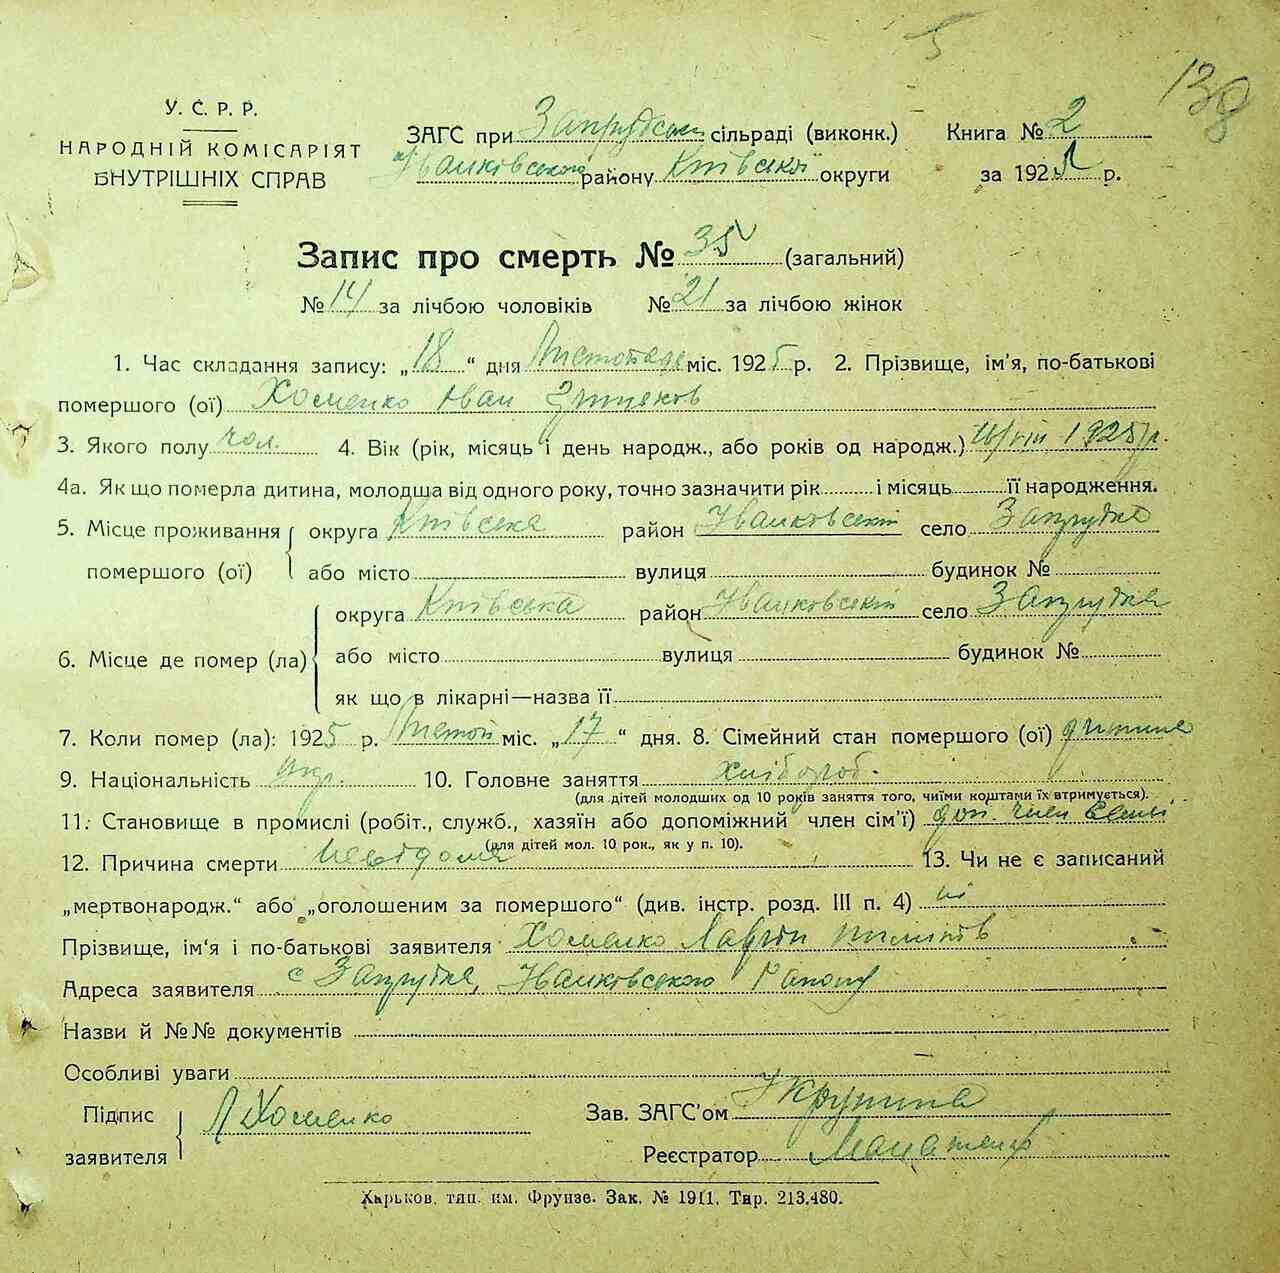 5
138
У. С. Р. Р.
НАРОДНІЙ КОМІСАРІЯТ
ВНУТРІШНІХ СПРАВ
ЗАГС при Запрудском сільраді (виконк.)
Иванківського району Київської округи
Книга № 2
за 1925 р.
Запис про смерть № 35 (загальний)
№ 14 за лічбою чоловіків № 21 за лічбою жінок
1. Час складання запису: „18“ дня Листопада міс. 1925 р. 2. Прізвище, ім'я, по-батькові
помершого (ої) Хоменко Іван Грицьков
3. Якого полу чол. 4. Вік (рік, місяць і день народж., або років од народж.) 16/VIII 1925 р.
4а. Як що померла дитина, молодша від одного року, точно зазначити рік і місяць її народження.
5. Місце проживання помершого (ої) округа Київська район Иванковський село Запрудка
або місто вулиця будинок №
6. Місце де помер (ла) округа Київська район Иванковський село Запрудка
або місто вулиця будинок №
як що в лікарні—назва її
7. Коли помер (ла): 1925 р. Листоп міс. „17“ дня. 8. Сімейний стан помершого (ої) дитина
9. Національність укр. 10. Головне заняття хлібороб.
(для дітей молодших од 10 років заняття того, чиїми коштами їх втримується).
11. Становище в промислі (робіт., служб., хазяїн або допоміжний член сім'ї) доп. член семьі
(для дітей мол. 10 рок., як у п. 10).
12. Причина смерти невідома 13. Чи не є записаний
„мертвонародж.“ або „оголошеним за помершого“ (див. інстр. розд. III п. 4) ні
Прізвище, ім'я і по-батькові заявителя Хоменко Лаврін
Адреса заявителя с Запрудка, Иванковського Району
Назви й №№ документів
Особливі уваги
Підпис заявителя Л Хоменко
Зав. ЗАГС'ом
Реєстратор
Харьков. тип. им. Фрунзе. Зак. № 1911. Тир. 213.480.